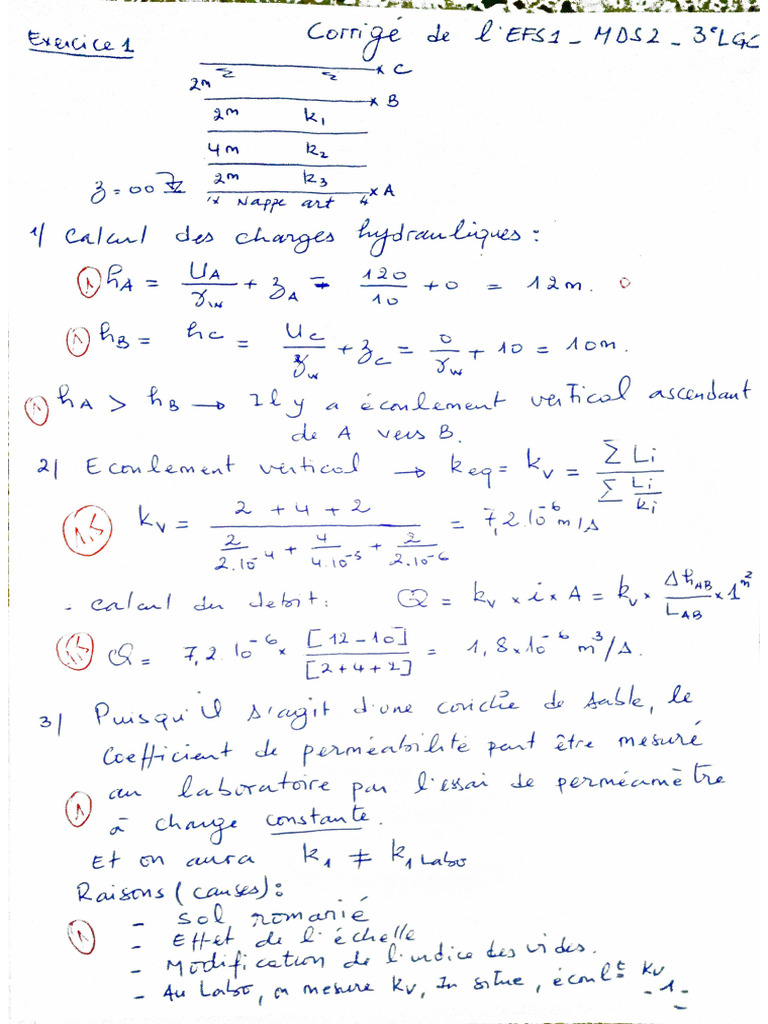 Corrigé de l'EFS1 - MDS2 - 3e LGC
Exercice 1
x C
2m
x B
2m k1
4m k2
2m k3
z = 00 x A
Nappe art
1/ Calcul des charges hydrauliques :
1 hA = UA/γw + zA = 120/10 + 0 = 12m.
1 hB = hC = UC/γw + zC = 0/γw + 10 = 10m.
1 hA > hB → Il y a écoulement vertical ascendant
de A vers B.
2/ Econlement vertical → keq = kv = Σ Li / Σ Li/ki
1,5 kv = (2 + 4 + 2) / (2/2.10^-4 + 4/4.10^-5 + 2/2.10^-6) = 7,2.10^-6 m/s
- Calcul du debit : Q = kv x i x A = kv x ΔhAB/LAB x 1m²
1,5 Q = 7,2.10^-6 x [12-10]/[2+4+2] = 1,8x10^-6 m³/s.
3/ Puisqu'il s'agit d'une couche de sable, le
Coefficient de perméabilité peut être mesuré
au laboratoire par l'essai de perméamètre
1 à charge constante.
Et on aura k1 ≠ k1 Labo
Raisons (causes) :
- Sol romanié
1 - Effet de l'échelle
- Modification de l'indice des vides.
- Au Labo, on mesure kv, In situe, écoult kv
- 1 -